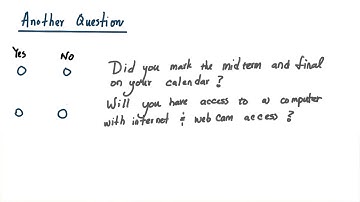 Another Question
Yes No
Did you mark the midterm and final
on your calendar?
Will you have access to a computer
with internet & web cam access?